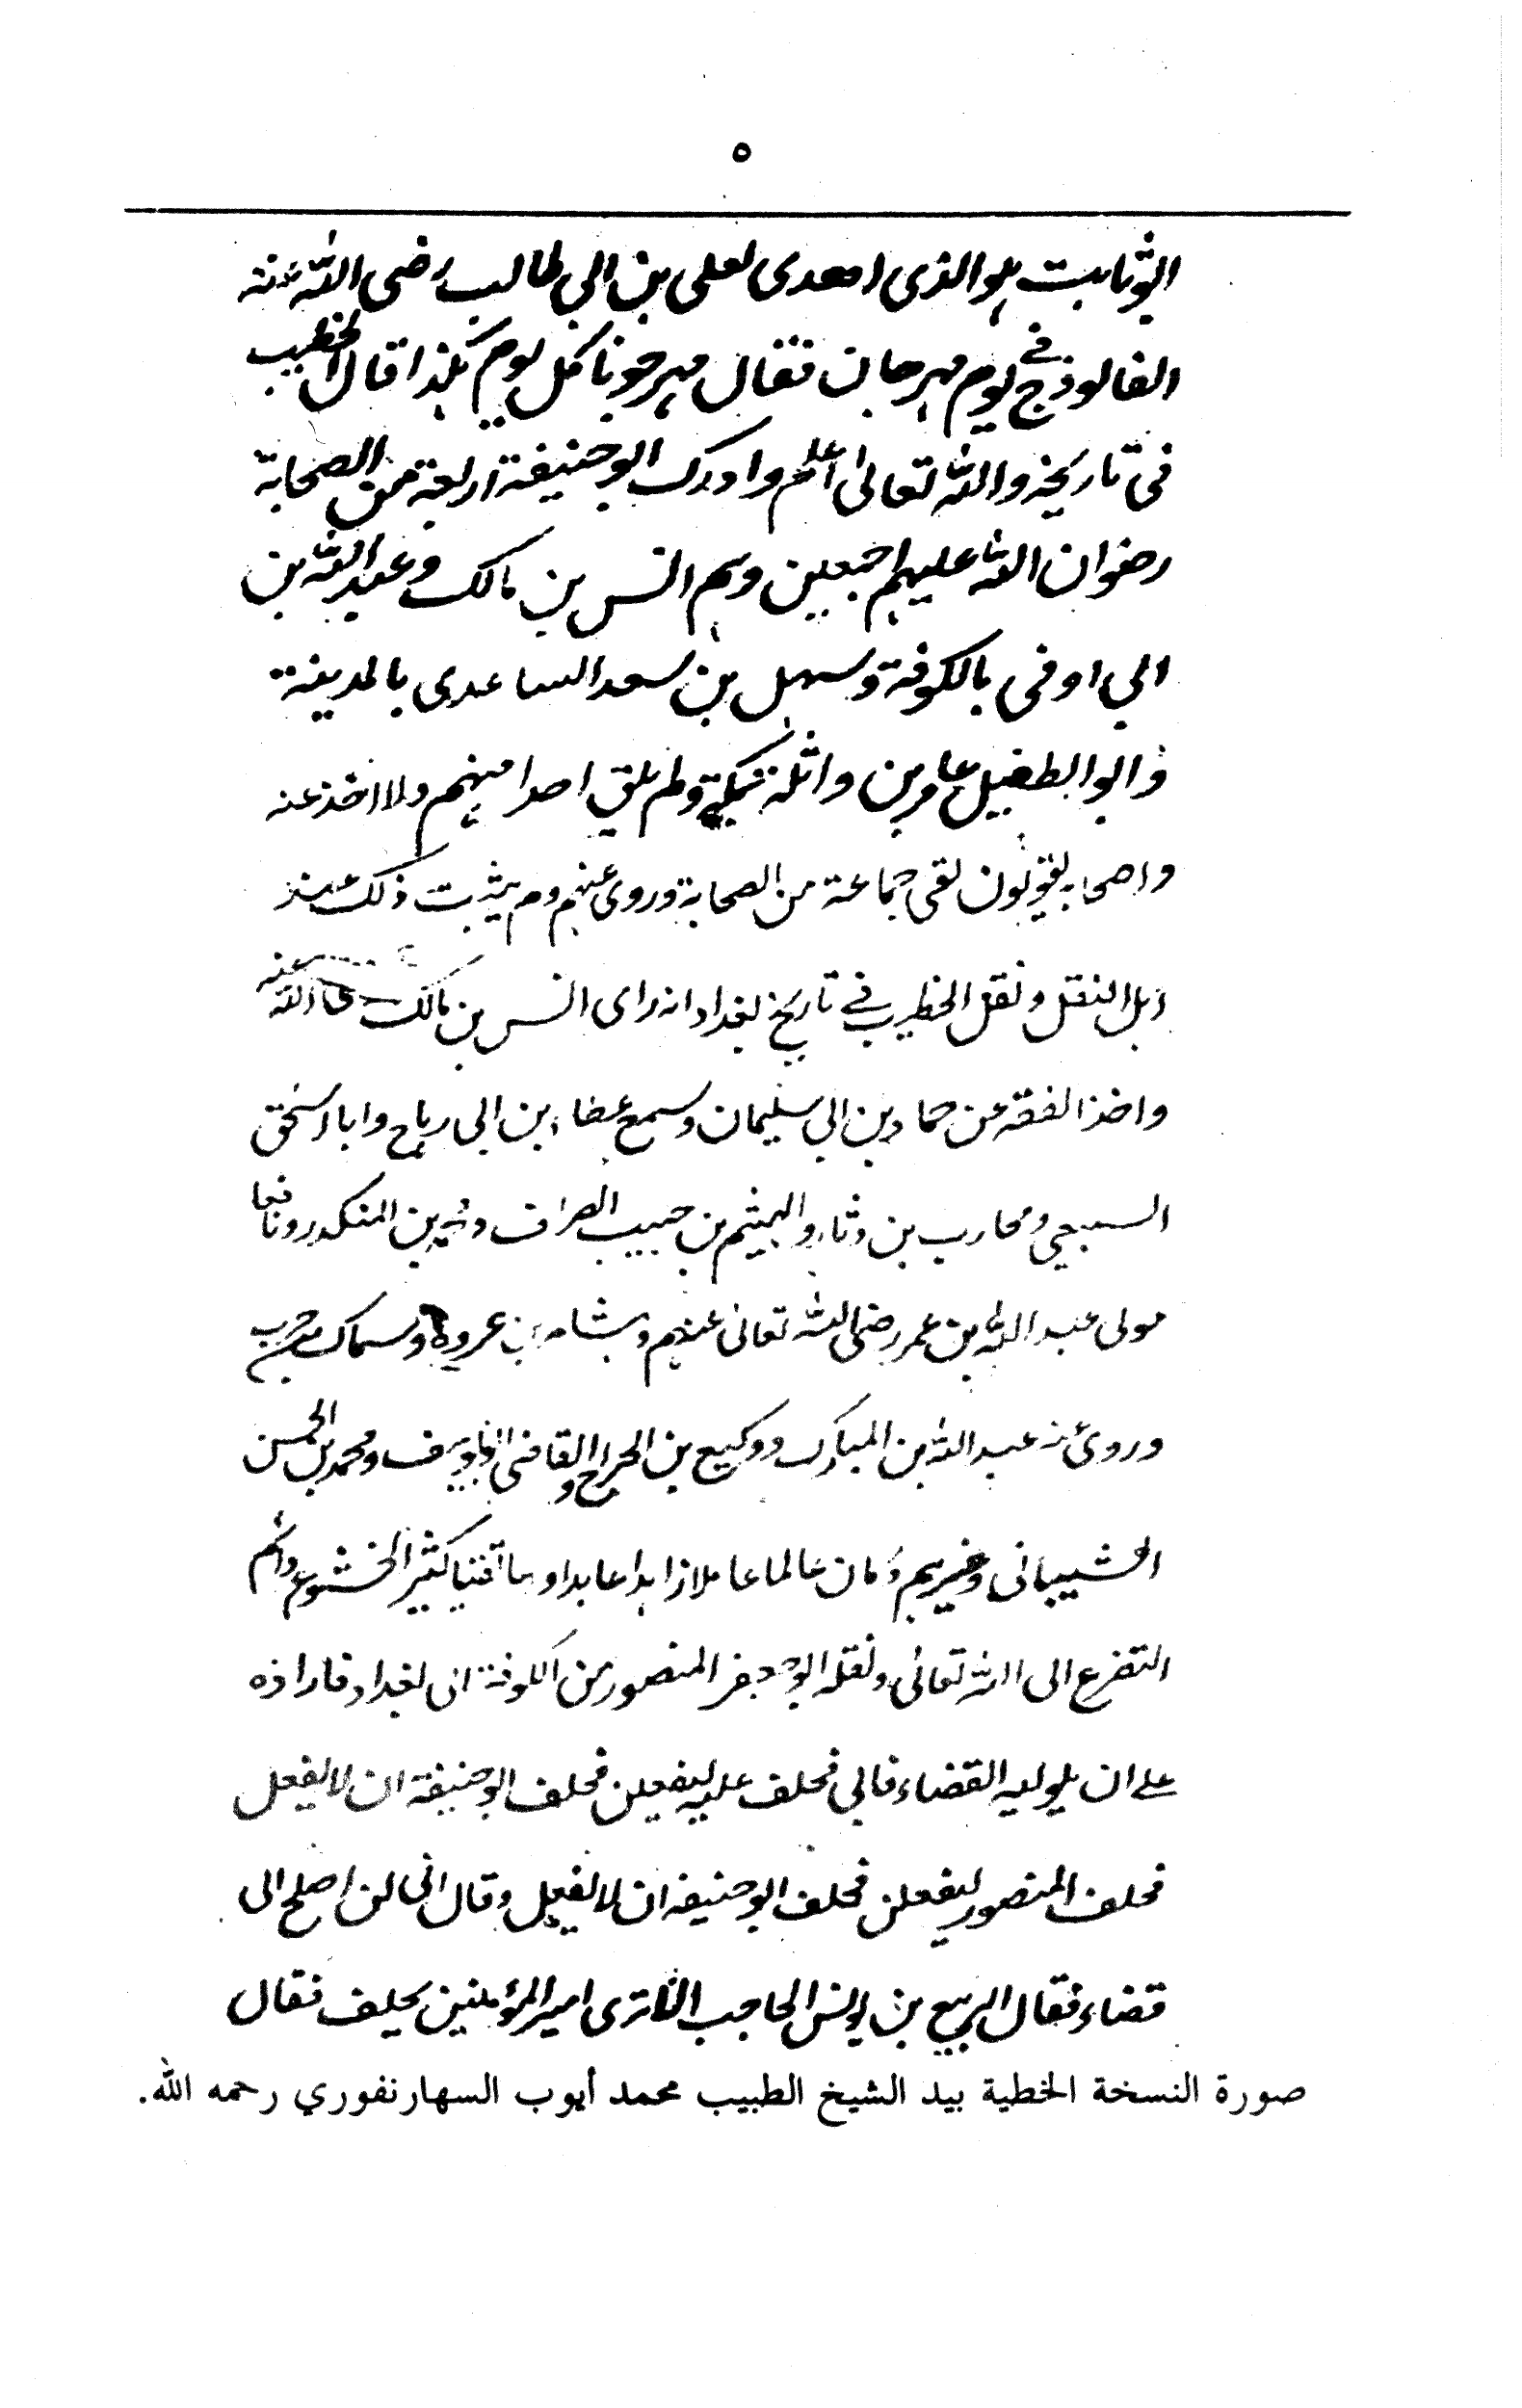 ٥
ابو ثابت هو الذى اهدى لعلى بن ابي طالب رضى الله عنه
الفالوذج في يوم مهرجان فقال مهرجونا كل يوم هكذا قال الخطيب
فى تاريخه والله تعالى اعلم وادرك ابو حنيفة اربعة من الصحابة
رضوان الله عليهم اجمعين وهم انس بن مالك وعبد الله بن
ابي اوفى بالكوفة وسهل بن سعد الساعدى بالمدينة
وابو الطفيل عامر بن واثلة بمكة ولم يلق احدا منهم ولا اخذ عنه
واصحابه يقولون لقى جماعة من الصحابة وروى عنهم ولم يثبت ذلك عند
اهل النقل ونقل الخطيب في تاريخ بغداد انه راى انس بن مالك الله عنه
واخذ الفقه عن حماد بن ابي سليمان وسمع عطاء بن ابى رباح وابا اسحق
السبيعي ومحارب بن دثار والهيثم بن حبيب الصراف ومحمد بن المنكدر ونافعا
مولى عبد الله بن عمر رضى الله تعالى عنهم وهشام بن عروة وسماك بن حرب
وروى عنه عبد الله بن المبارك ووكيع بن الجراح والقاضى ابو يوسف ومحمد بن الحسن
الشيبانى وغيرهم وكان عالما عاملا زاهدا عابدا ورعا تقيا كثير الخشوع دائم
التضرع الى الله تعالى ونقله ابو جعفر المنصور من الكوفة الى بغداد فاراده
على ان يوليه القضاء فابي فحلف عليه ليفعلن فحلف ابو حنيفة ان لا يفعل
فحلف المنصور ليفعلن فحلف ابو حنيفة ان لا يفعل وقال انى لن اصلح الى
قضاء فقال الربيع بن يونس الحاجب الا ترى امير المؤمنين يحلف فقال
صورة النسخة الخطية بيد الشيخ الطبيب محمد أيوب السهارنفوري رحمه الله.